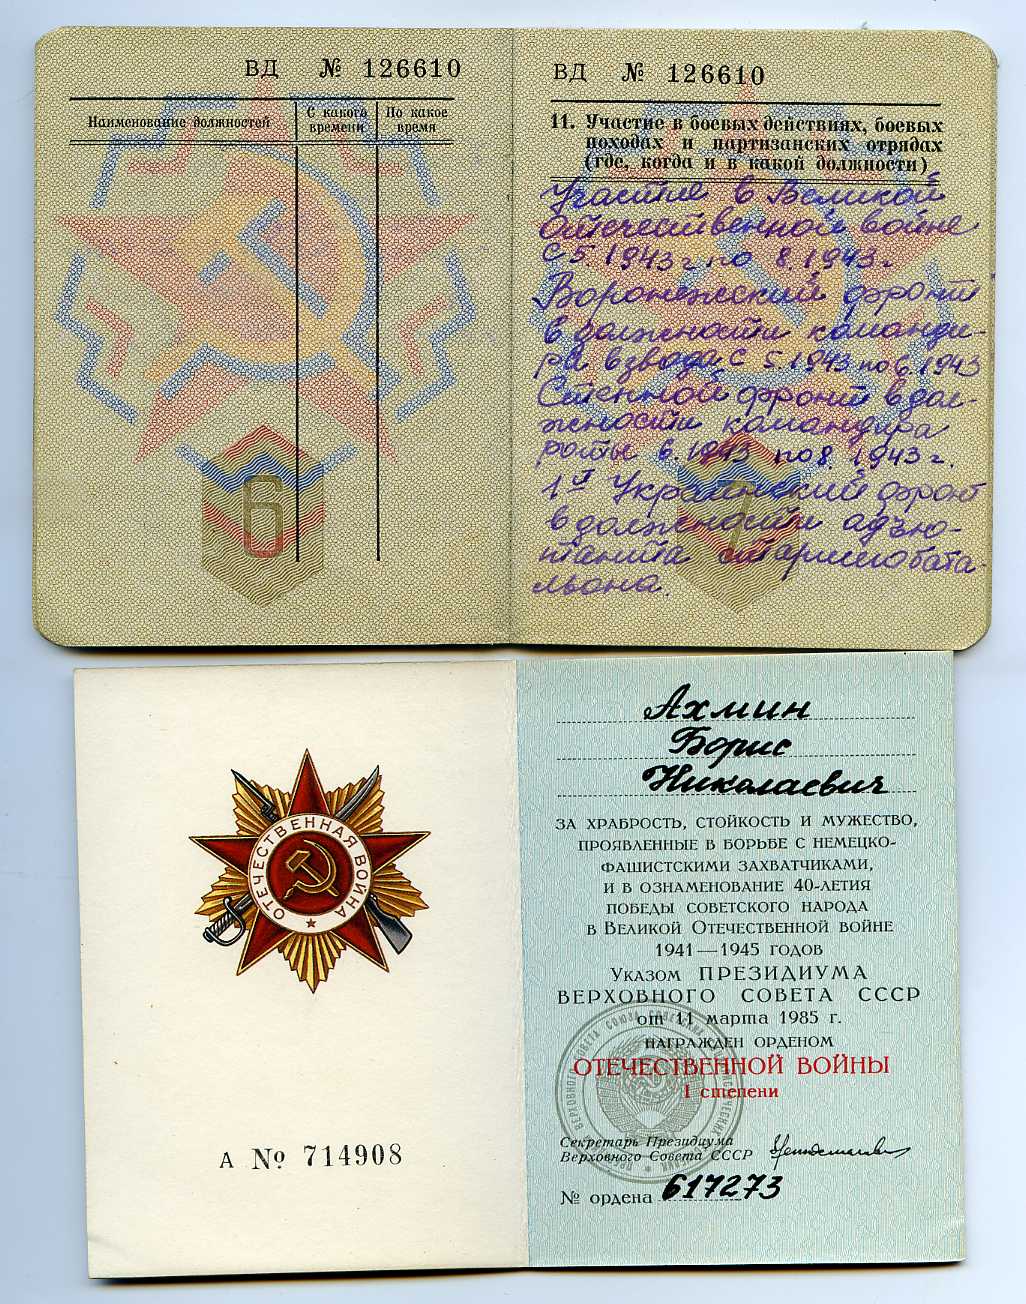 ВД № 126610
Наименование должностей
С какого времени
По какое время
6
ВД № 126610
11. Участие в боевых действиях, боевых
походах и партизанских отрядах
(где, когда и в какой должности)
Участие в Великой
Отечественной войне
с 5.1943 г. по 8.1943 г.
Воронежский фронт
в должности команди-
ра взвода с 5.1943 по 6.1943
Степной фронт в дол-
жности командира
роты 6.1943 по 8.1943 г.
1й Украинский фронт
в должности адъю-
танта старшего баталь-
льона.
7
ОТЕЧЕСТВЕННАЯ ВОЙНА
А № 714908
Ахмин
Борис
Николаевич
ЗА ХРАБРОСТЬ, СТОЙКОСТЬ И МУЖЕСТВО,
ПРОЯВЛЕННЫЕ В БОРЬБЕ С НЕМЕЦКО-
ФАШИСТСКИМИ ЗАХВАТЧИКАМИ,
И В ОЗНАМЕНОВАНИЕ 40-ЛЕТИЯ
ПОБЕДЫ СОВЕТСКОГО НАРОДА
В ВЕЛИКОЙ ОТЕЧЕСТВЕННОЙ ВОЙНЕ
1941—1945 ГОДОВ
УКАЗОМ ПРЕЗИДИУМА
ВЕРХОВНОГО СОВЕТА СССР
от 11 марта 1985 г.
НАГРАЖДЕН ОРДЕНОМ
ОТЕЧЕСТВЕННОЙ ВОЙНЫ
I степени
Секретарь Президиума
Верховного Совета СССР
№ ордена 617273